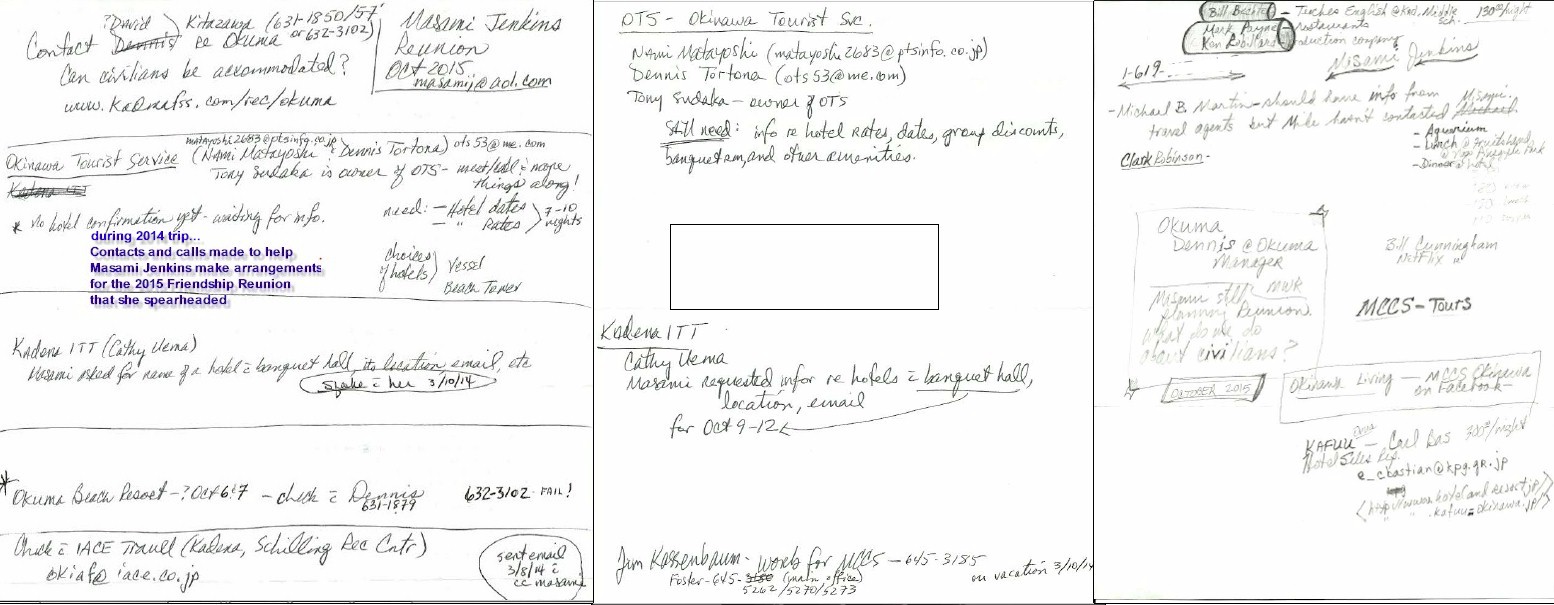 ?David
Kitazawa (631-1850/57
Contact Dennis re Okuma or 632-3102)
Can civilians be accommodated?
www.kadenafss.com/rec/okuma
Masami Jenkins
Reunion
Oct 2015
masamij@aol.com
matayoshi2683@ptsinfo.co.jp
Okinawa Tourist Service (Nami Matayoshi & Dennis Tortona) ots53@me.com
Tony Sudaka is owner of OTS - meet/call & move
things along!
Kadena ITT
* No hotel confirmation yet - waiting for info.
need: - Hotel dates
- " Rates
7-10
nights
during 2014 trip...
Contacts and calls made to help
Masami Jenkins make arrangements
for the 2015 Friendship Reunion
that she spearheaded
choices
of hotels
Vessel
Beach Tower
Kadena ITT (Cathy Uema)
Masami asked for name of a hotel c̄ banquet hall, its location, email, etc
spoke c̄ her 3/10/14
* Okuma Beach Resort - ? Oct 6 & 7 - check c̄ Dennis
631-1879
632-3102 - FAIL!
Check c̄ IACE Travel (Kadena, Schilling Rec Cntr)
okiaf@iace.co.jp
sent email
3/8/14 c̄
cc masami
OTS - Okinawa Tourist Svc.
Nami Matayoshi (matayoshi2683@ptsinfo.co.jp)
Dennis Tortona (ots53@me.com)
Tony Sudaka - owner of OTS
Still need: info re hotel rates, dates, group discounts,
banquet rm, and other amenities.
Kadena ITT
Cathy Uema
Masami requested infor re hotels c̄ banquet hall,
location, email
for Oct 9-12
Jim Kassenbaum - works for MCCS - 645-3185
Foster - 645- (main office)
5262/5270/5273
on vacation 3/10/14
Bill Bechtel - Teaches English @ Kad. Middle Sch.
130°°/night
Mark Payne - restaurants
Ken production company
Masami Jenkins
1-619-
- Michael B. Martin - should have info from Masami.
travel agents but Mike hasn't contacted Michael
- Aquarium
- Lunch @
@ Pineapple Park
- Dinner @
Clark Robinson -
Okuma
Dennis @ Okuma
Manager
MWR
Masami still
planning Reunion.
What do we do
about civilians?
Bill Cunningham
Netflix
MCCS - Tours
OCTOBER 2015
Okinawa Living - MCCS Okinawa
on Facebook
KAFUU - Carl Bas 300°°/night
Hotel Sales Rep.
e_cbastian@kpg.gr.jp
kafuu-okinawa.jp/